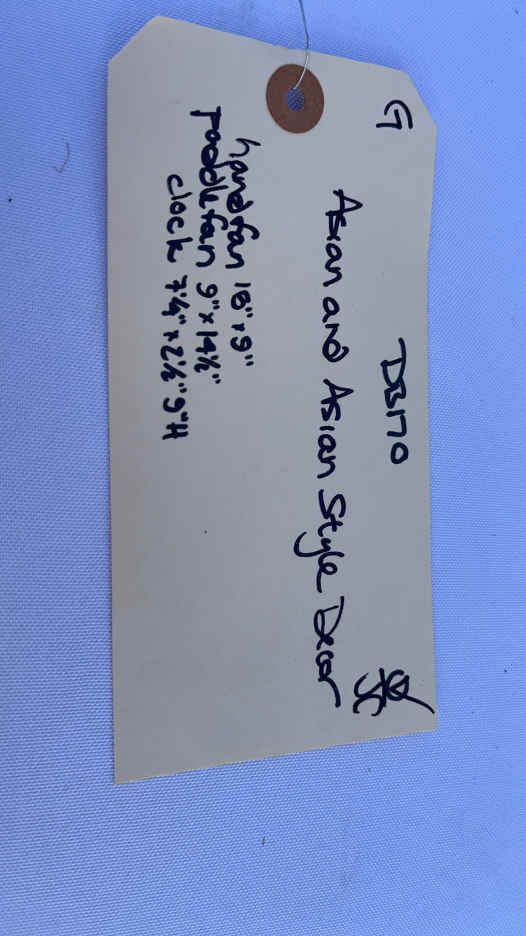 G
DB170
Asian and Asian Style Decor
hand fan 18" x 9"
paddle fan 9" x 14½"
clock 7¼" x 2½" 9"H